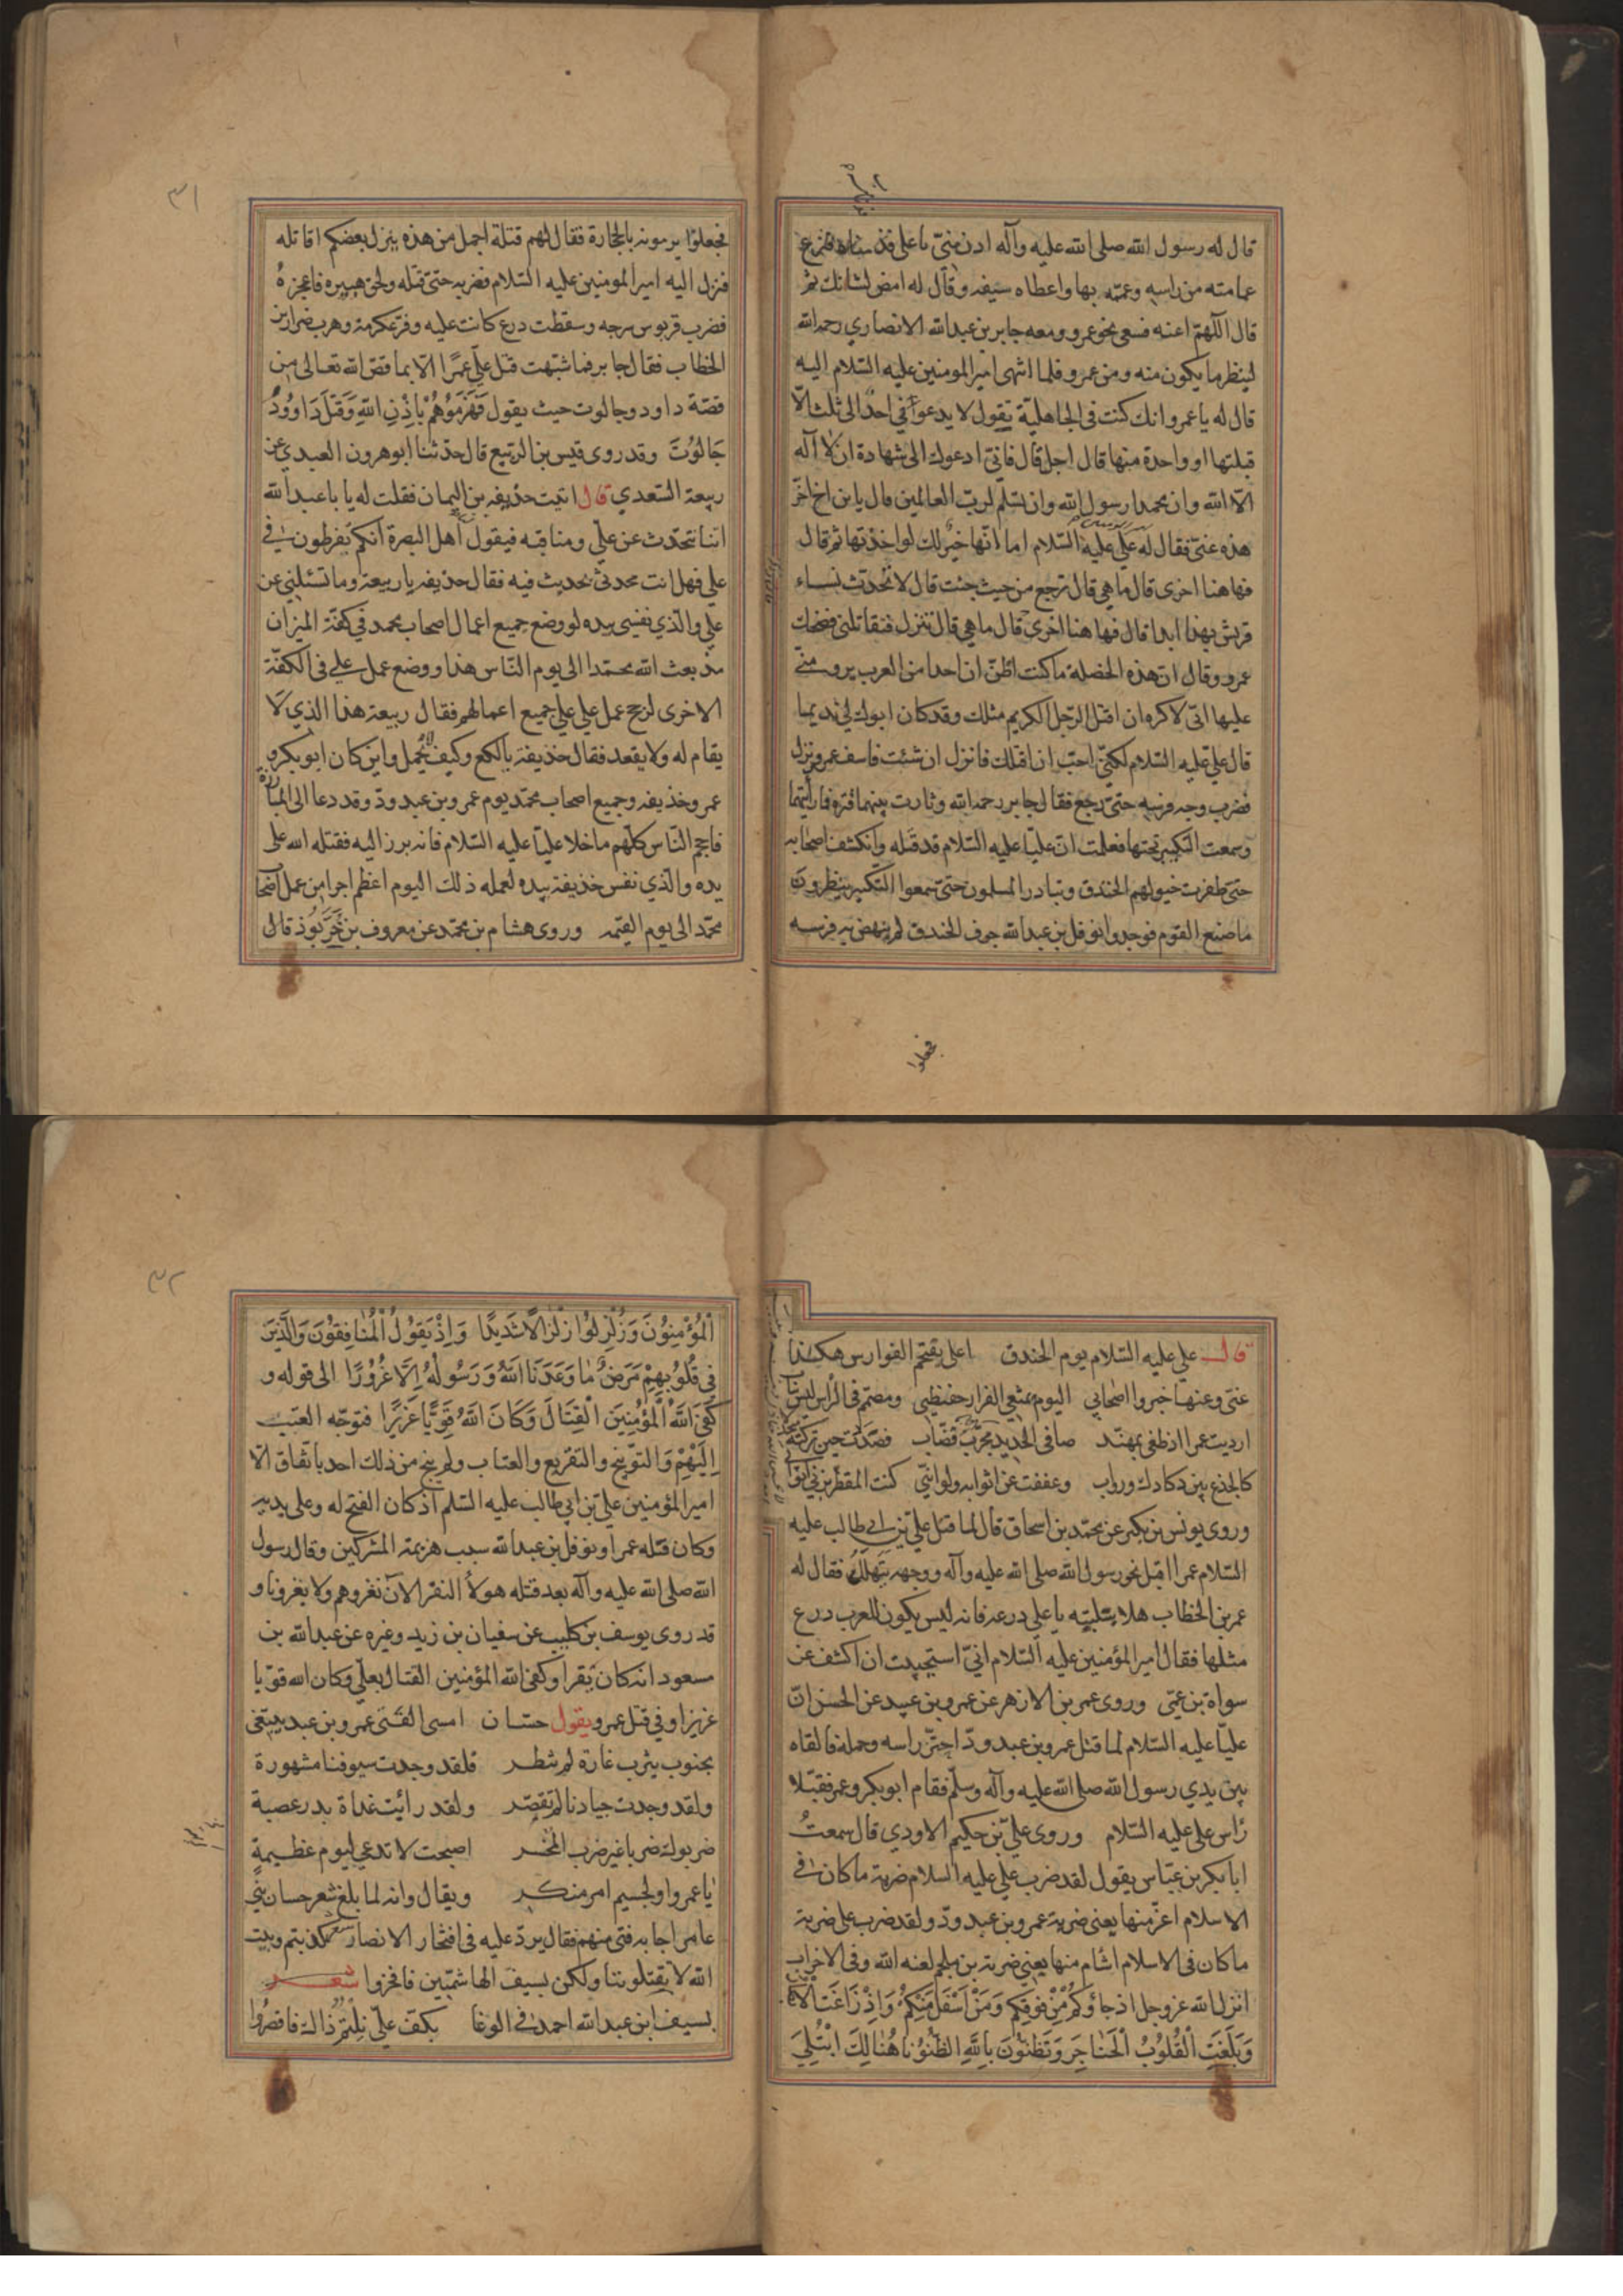 قال له رسول الله صلى الله عليه وآله ادن منّي ياعلي فدنا منه فنزع
عمامته من راسه وعمّمه بها واعطاه سيفه وقال له امض لشانك ثم
قال اللهمّ اعنه فسعى نحو عمرو ومعه جابر بن عبدالله الانصاري رحمه الله
لينظر ما يكون منه ومن عمرو فلما انتهى امير المومنين عليه السّلام اليه
قال له ياعمرو انك كنت في الجاهليّة تقول لا يدعوني احد الى ثلث الّا
قبلتها او واحدة منها قال اجل قال فانّي ادعوك الى شهادة ان لا اله
الّا الله وان محمدا رسول الله وان تسلم لربّ العالمين قال يابن اخ اخّر
هذه عنّي فقال له علي عليه السّلام اما انّها خير لك لو اخذتها ثم قال
فهاهنا اخرى قال ما هي قال ترجع من حيث جئت قال لا تحدّث نساء
قريش بهذا ابدا قال فهاهنا اخرى قال ما هي قال تنزل فتقاتلني فضحك
عمرو وقال ان هذه الخصلة ما كنت اظنّ ان احدا من العرب يرومني
عليها انّي لاكره ان اقتل الرّجل الكريم مثلك وقد كان ابوك لي نديما
قال علي عليه السّلام لكنّي احبّ ان اقتلك فانزل ان شئت فاسف عمرو ونزل
فضرب وجه فرسه حتى رجع فقال جابر رحمه الله وثارت بينهما قترة فما رأيتهما
وسمعت التكبير تحتها فعلمت انّ عليّا عليه السّلام قد قتله وانكشف اصحابه
حتى طفرت خيولهم الخندق وتبادر المسلمون حتى سمعوا التّكبير ينظرون
ما صنع القوم فوجدوا نوفل بن عبدالله جوف الخندق لم ينهض به فرسه
فجعلوا
٣١
فجعلوا يرمونه بالحجارة فقال لهم قتلة اجمل من هذه ينزل بعضكم اقاتله
فنزل اليه امير المومنين عليه السّلام فضربه حتى قتله ولحق هبيره فاعجزه
فضرب قربوس سرجه وسقطت درع كانت عليه وفرّ عكرمة وهرب ضرار بن
الخطاب فقال جابر فما شبّهت قتل علي عمرًا الّا بما قصّ الله تعالى من
قصّة داود وجالوت حيث يقول فَهَزَمُوهُمْ بِاِذْنِ اللهِ وَقَتَلَ دَاوُودُ
جَالُوتَ وقد روى قيس بن الرّبيع قال حدّثنا ابوهرون العبدي عن
ربيعة السّعدي قال اتيت حذيفه بن اليمان فقلت له يا باعبدالله
انّنا نتحدّث عن علي ومناقبه فيقول اهل البصرة انكم تفرطون في
علي فهل انت محدثي بحديث فيه فقال حذيفه ياربيعة وما تسئلني عن
علي والّذي نفسي بيده لو وضع جميع اعمال اصحاب محمد في كفّة الميزان
مذ بعث الله محمّدا الى يوم النّاس هذا ووضع عمل علي في الكفّة
الاخرى لرجح عمل علي على جميع اعمالهم فقال ربيعة هذا الّذي لا
يقام له ولا يقعد فقال حذيفة يالكع وكيف لا يحمل واين كان ابوبكر و
عمر وحذيفه وجميع اصحاب محمّد يوم عمرو بن عبدودّ وقد دعا الى المبارزة
فاحجم النّاس كلّهم ما خلا عليّا عليه السّلام فانه برز اليه فقتله الله على
يده والّذي نفس حذيفة بيده لعمله ذلك اليوم اعظم اجرا من عمل اصحاب
محمّد الى يوم القيمه وروى هشام بن محمّد عن معروف بن خَرَّبُوذ قال
قال علي عليه السّلام يوم الخندق اعلي يقتحم الفوارس هكذا
عنّي وعنها خبروا اصحابي اليوم يمنعني الفرار حفيظتي ومصمّم في الرّاس ليس بناب
ارديت عمرا اذ طغى بمهنّد صافي الحديد مجرّب قضّاب فصددت حين تركته متجدّلا
كالجذع بين دكادك وروابي وعففت عن اثوابه ولو انّني كنت المقطّر بزّني اثوابي
وروى يونس بن بكير عن محمّد بن اسحاق قال لما قتل علي بن ابي طالب عليه
السّلام عمرا اقبل نحو رسول الله صلى الله عليه وآله ووجهه يتهلّل فقال له
عمر بن الخطاب هلا سلبته ياعلي درعه فانه ليس يكون للعرب درع
مثلها فقال امير المؤمنين عليه السّلام انّي استحييت ان اكشف عن
سواة بن عمّي وروى عمر بن الازهر عن عمرو بن عبيد عن الحسن انّ
عليّا عليه السّلام لما قتل عمرو بن عبدودّ احتزّ راسه وحمله فالقاه
بين يدي رسول الله صلى الله عليه وآله وسلّم فقام ابوبكر وعمر فقبّلا
رأس علي عليه السّلام وروى علي بن حكيم الاودي قال سمعتُ
ابابكر بن عيّاس يقول لقد ضرب علي عليه السلام ضربة ما كان في
الاسلام اعزّ منها يعني ضربة عمرو بن عبدودّ ولقد ضرب علي ضربة
ما كان في الاسلام اشام منها يعني ضربة بن ملجم لعنه الله وفي الاحزاب
انزل الله عزوجل اذ جاؤكُمْ مِنْ فَوْقِكُمْ وَمِنْ اَسْفَلَ مِنْكُمْ وَاِذْ زَاغَتِ الْاَبْصَارُ
وَبَلَغَتِ الْقُلُوبُ الْحَنَاجِرَ وَتَظُنُّونَ بِاللهِ الظُّنُونَا هُنَالِكَ ابْتُلِيَ
٣٢
الْمُؤْمِنُونَ وَزُلْزِلُوا زِلْزَالًا شَدِيدًا وَاِذْ يَقُولُ الْمُنَافِقُونَ وَالَّذِينَ
فِي قُلُوبِهِمْ مَرَضٌ مَا وَعَدَنَا اللهُ وَرَسُولُهُ اِلَّا غُرُورًا الى قوله و
كَفَى اللهُ الْمُؤْمِنِينَ الْقِتَالَ وَكَانَ اللهُ قَوِيًّا عَزِيزًا فتوجّه العتب
اِلَيْهِمْ وَالتوبيخ والتقريع والعتاب ولم ينج من ذلك احد باتّفاق الّا
امير المؤمنين علي بن ابي طالب عليه السّلم اذ كان الفتح له وعلى يديه
وكان قتله عمرا ونوفل بن عبدالله سبب هزيمة المشركين وقال رسول
الله صلى الله عليه وآله بعد قتله هولاء النفر الآن نغزوهم ولا يغزونا و
قد روى يوسف بن كليب عن سفيان بن زيد وغيره عن عبدالله بن
مسعود انه كان يقرا وكفى الله المؤمنين القتال بعلي وكان الله قويا
عزيزا وفي قتل عمرو يقول حسّان امسى الفتى عمرو بن عبد يبتغي
بجنوب يثرب غارة لم تنظر فلقد وجدت سيوفنا مشهورة
ولقد وجدت جيادنا لم تقصر ولقد رأيت غداة بدر عصبة
ضربوك ضربا غير ضرب المخسر اصبحت لا تدعى ليوم عظيمةٍ
ياعمرو او لجسيم امر منكر ويقال وانه لما بلغ شعر حسان بني
عامر اجابه فتى منهم فقال يردّ عليه في افتخار الانصار كذبتم وبيت
الله لا يقتلوننا ولكن بسيف الهاشميّين فافخروا شعر
بسيف ابن عبدالله احمد في الوغا بكفّ علي نلتم ذاك فاقصُرُوا